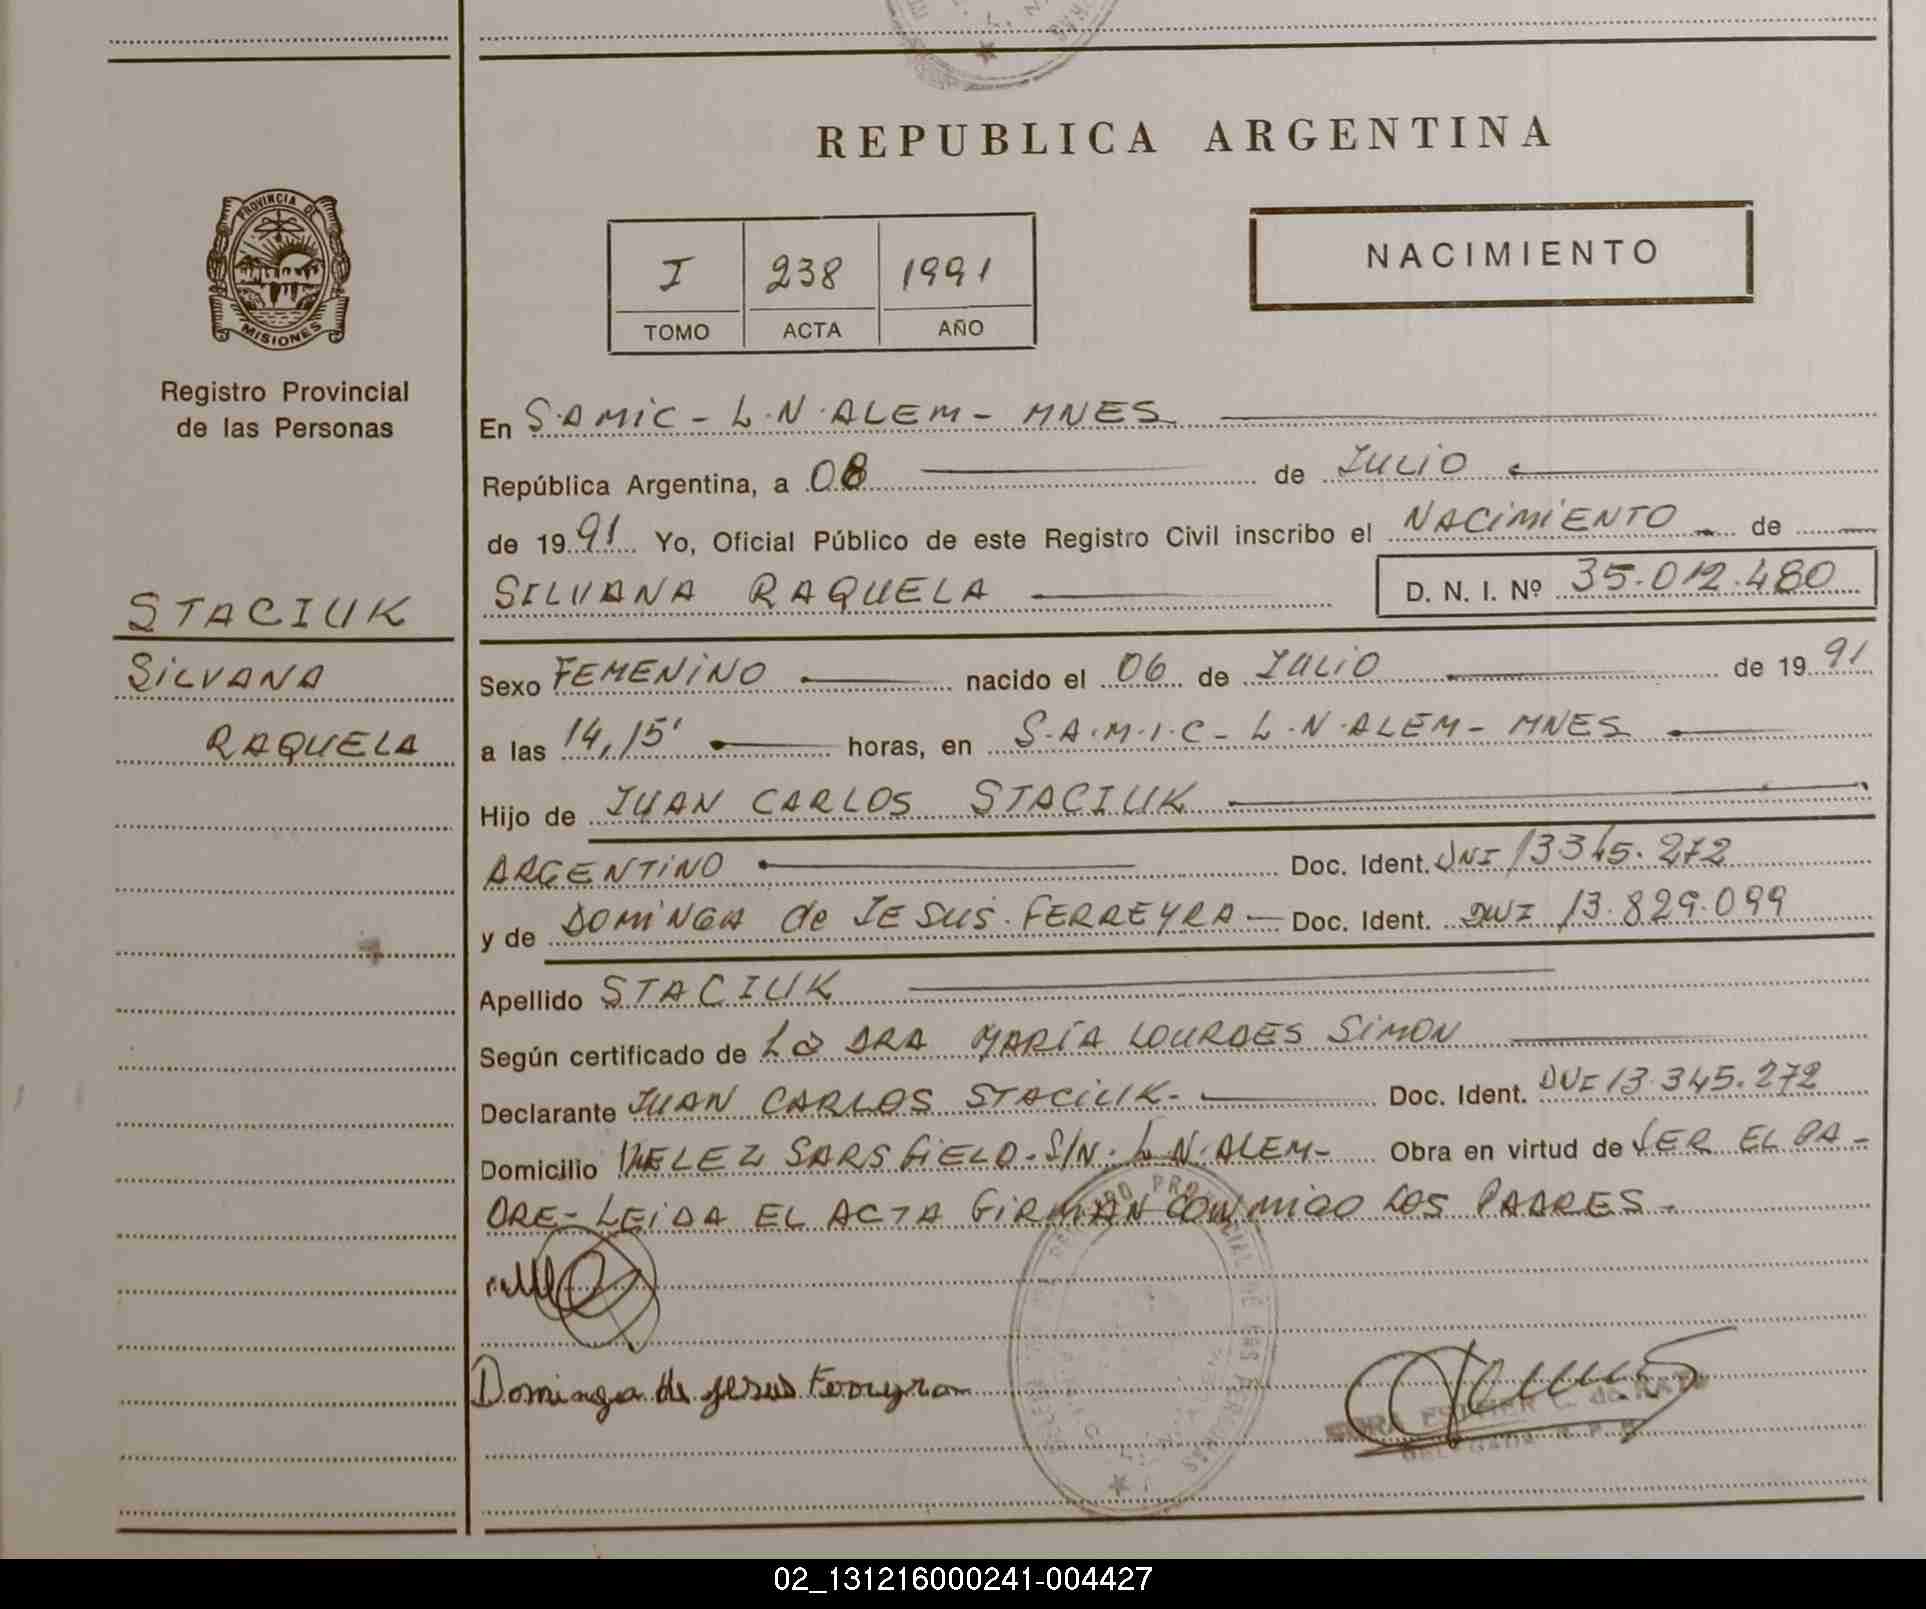 REPUBLICA ARGENTINA
PROVINCIA DE
MISIONES
Registro Provincial
de las Personas
I 238 1991
TOMO ACTA AÑO
NACIMIENTO
En S.AMIC - L.N.ALEM - MNES
República Argentina, a 08 de JULIO
de 1991 Yo, Oficial Público de este Registro Civil inscribo el NACIMIENTO de
SILVANA RAQUELA D. N. I. Nº 35.012.480
STACIUK
SILVANA
RAQUELA
Sexo FEMENINO nacido el 06 de JULIO de 1991
a las 14,15' horas, en S.A.M.I.C - L.N.ALEM - MNES
Hijo de JUAN CARLOS STACIUK
ARGENTINO Doc. Ident. DNI 13345.272
y de DOMINGA de JESUS FERREYRA - Doc. Ident. DNI 13.829.099
Apellido STACIUK
Según certificado de La DRA MARÍA LOURDES SIMON
Declarante JUAN CARLOS STACIUK - Doc. Ident. DNI 13.345.272
Domicilio VELEZ SARSFIELD - S/N. L.N.ALEM - Obra en virtud de SER EL PA-
DRE - LEIDA EL ACTA FIRMAN CONMIGO LOS PADRES -
Dominga de Jesus Ferreyra
ESTHER
DELEGADA
02_131216000241-004427